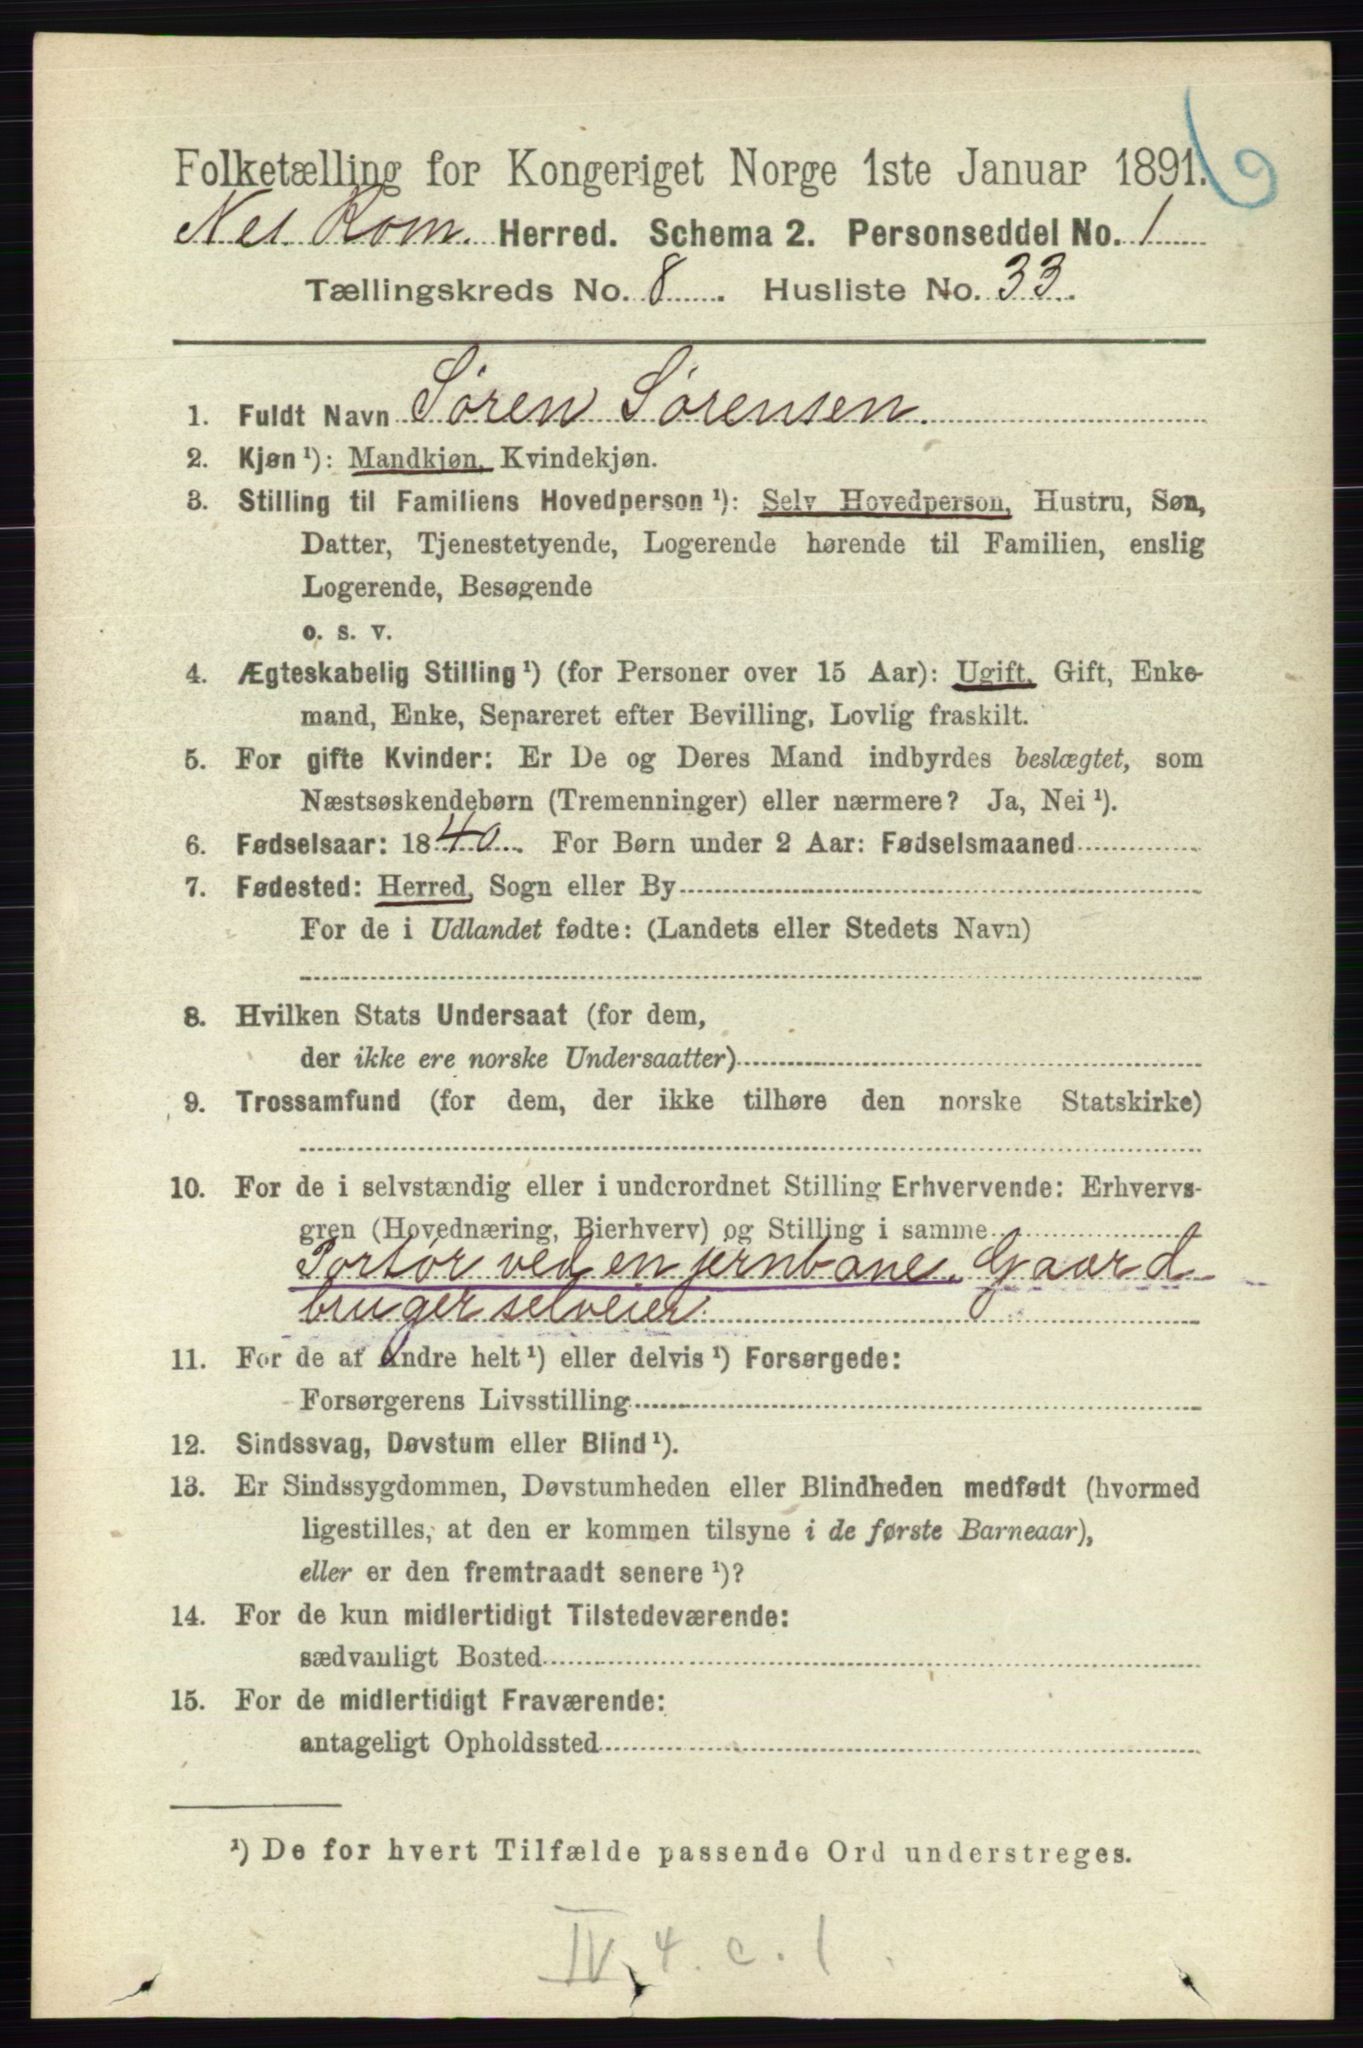 Folketælling for Kongeriget Norge 1ste Januar 1891.
Nes Rom. Herred. Schema 2. Personseddel No. 1
Tællingskreds No. 8. Husliste No. 33.
1. Fuldt Navn Søren Sørensen.
2. Kjøn ¹): Mandkjøn, Kvindekjøn.
3. Stilling til Familiens Hovedperson ¹): Selv Hovedperson, Hustru, Søn,
Datter, Tjenestetyende, Logerende hørende til Familien, enslig
Logerende, Besøgende
o. s. v.
4. Ægteskabelig Stilling ¹) (for Personer over 15 Aar): Ugift, Gift, Enke-
mand, Enke, Separeret efter Bevilling, Lovlig fraskilt.
5. For gifte Kvinder: Er De og Deres Mand indbyrdes beslægtet, som
Næstsøskendebørn (Tremenninger) eller nærmere? Ja, Nei ¹).
6. Fødselsaar: 1840. For Børn under 2 Aar: Fødselsmaaned
7. Fødested: Herred, Sogn eller By
For de i Udlandet fødte: (Landets eller Stedets Navn)
8. Hvilken Stats Undersaat (for dem,
der ikke ere norske Undersaatter)
9. Trossamfund (for dem, der ikke tilhøre den norske Statskirke)
10. For de i selvstændig eller i underordnet Stilling Erhvervende: Erhvervs-
gren (Hovednæring, Bierhverv) og Stilling i samme
Portør ved en jernbane. Gaard
bruger selveier.
11. For de af Andre helt ¹) eller delvis ¹) Forsørgede:
Forsørgerens Livsstilling
12. Sindssvag, Døvstum eller Blind ¹).
13. Er Sindssygdommen, Døvstumheden eller Blindheden medfødt (hvormed
ligestilles, at den er kommen tilsyne i de første Barneaar),
eller er den fremtraadt senere ¹)?
14. For de kun midlertidigt Tilstedeværende:
sædvanligt Bosted
15. For de midlertidigt Fraværende:
antageligt Opholdssted
¹) De for hvert Tilfælde passende Ord understreges.
IV. 4. c. 1.